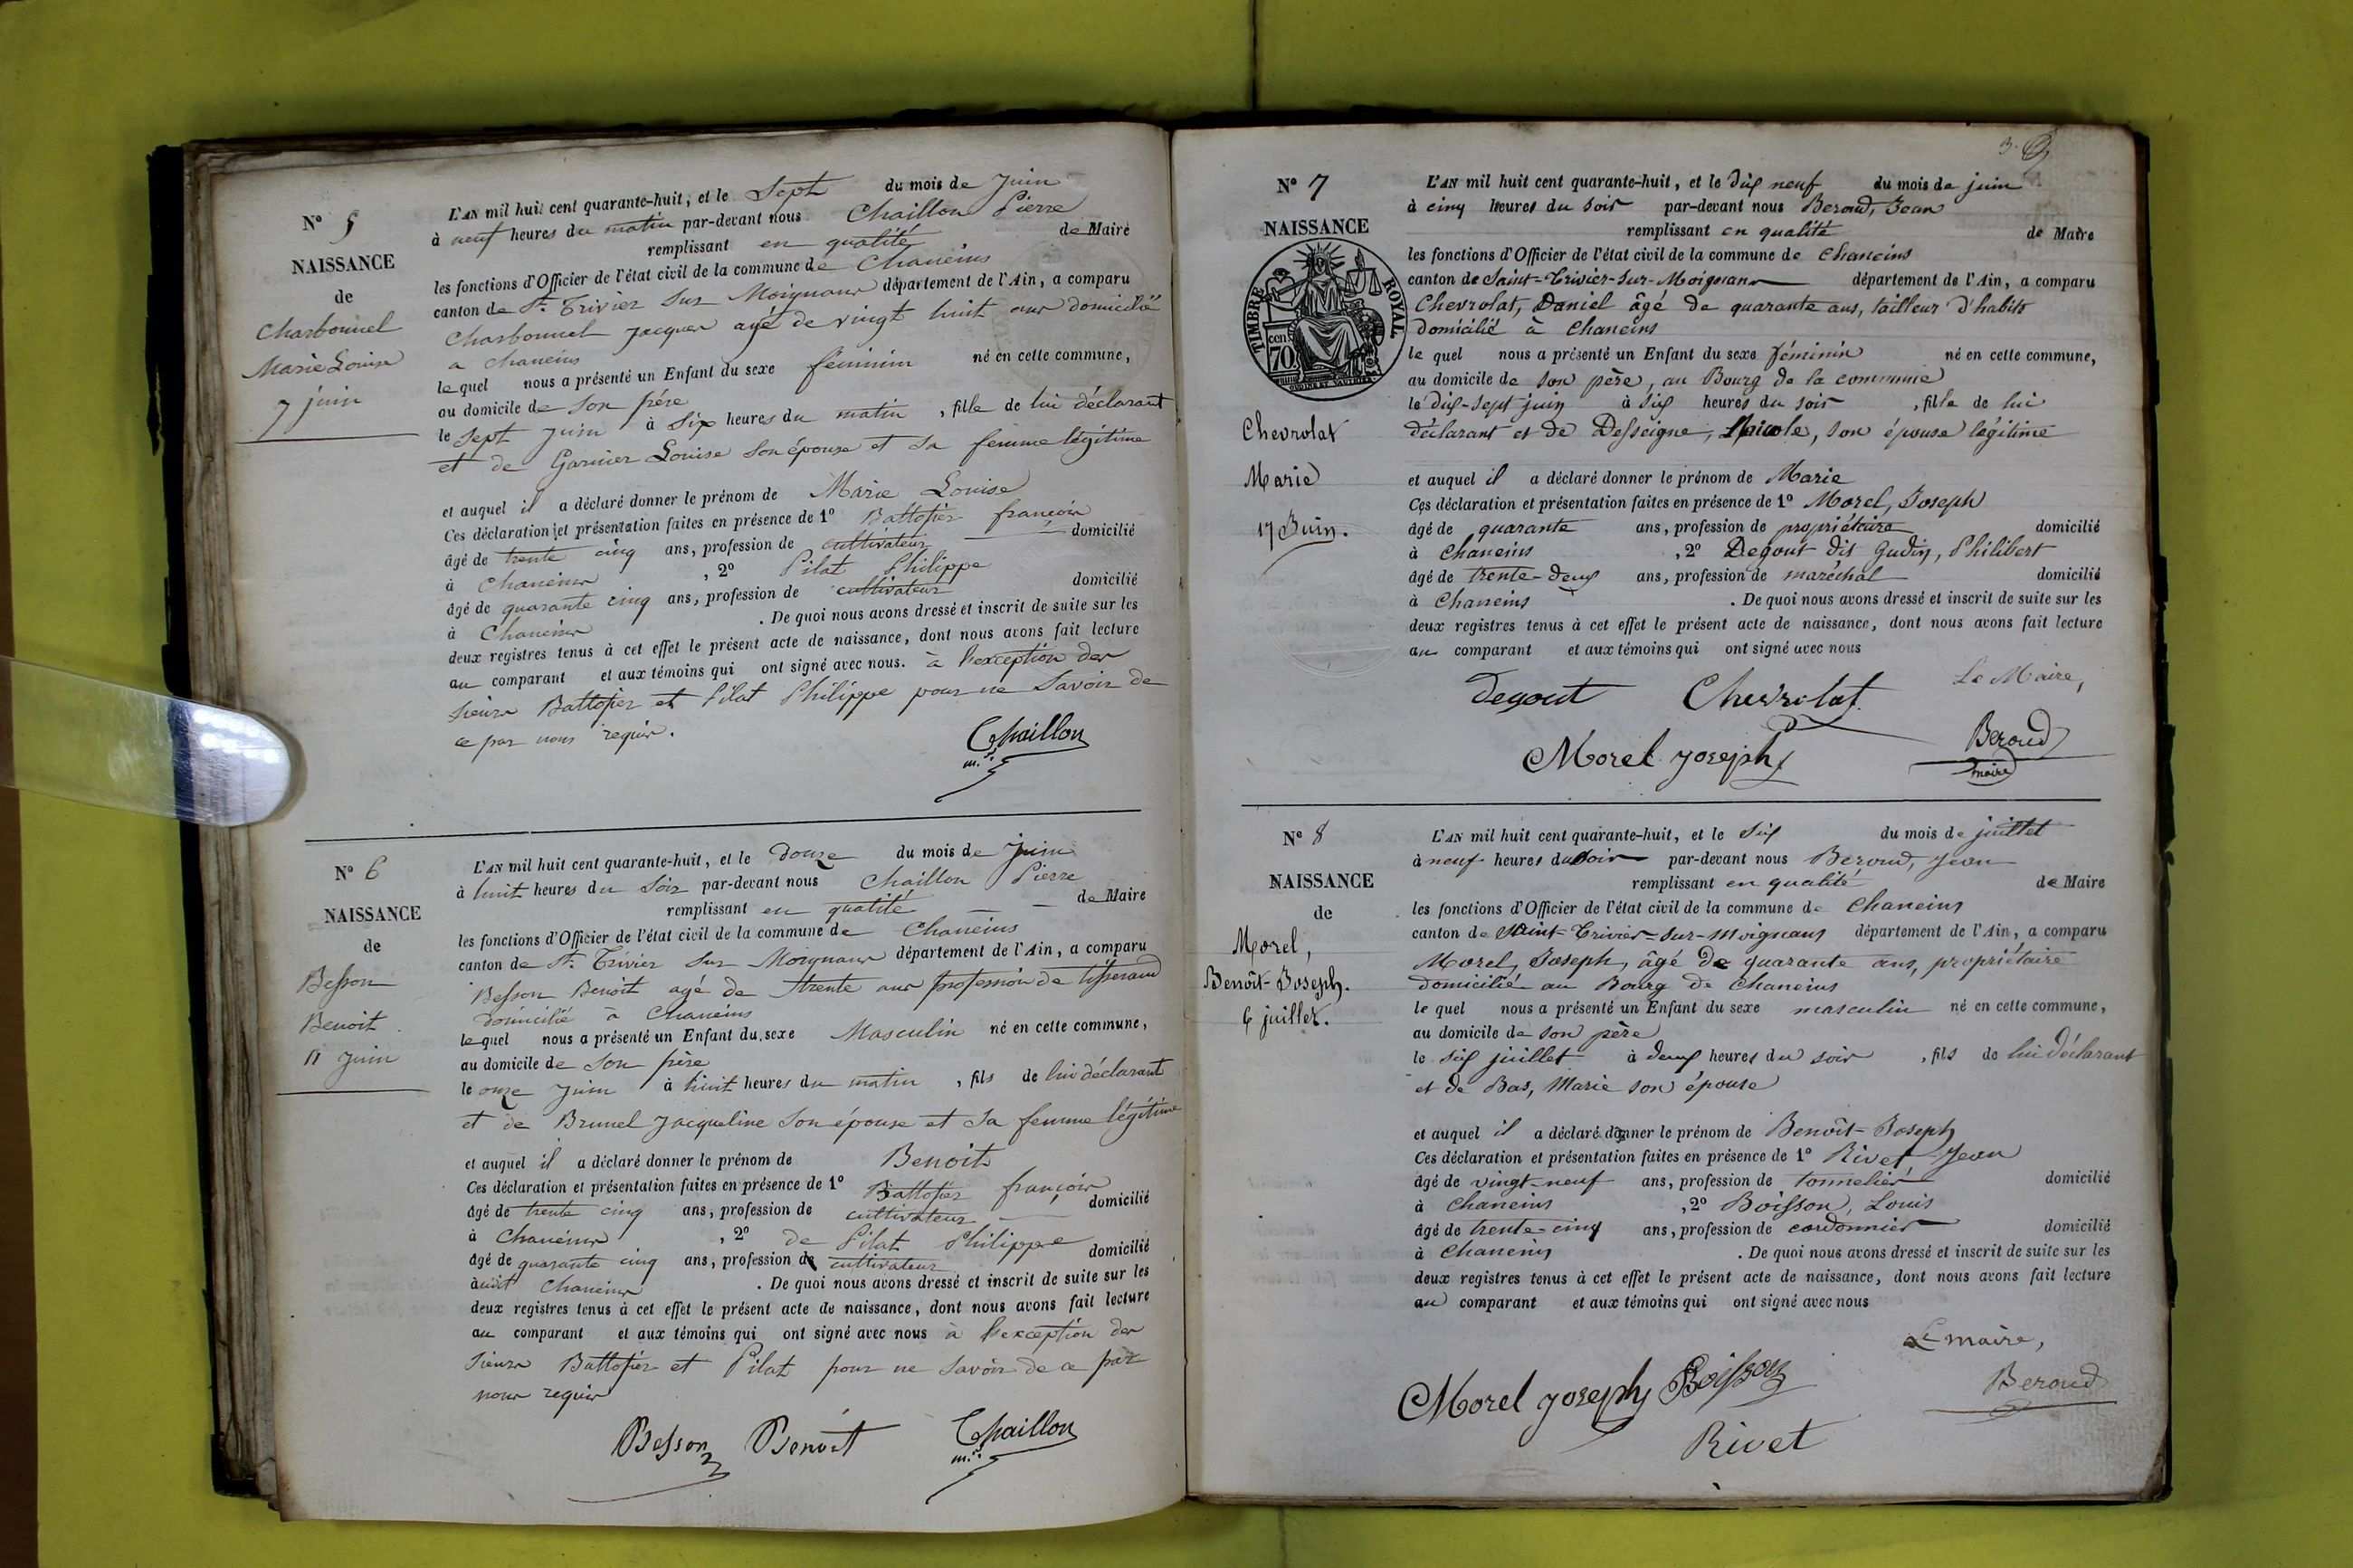 N° 5
NAISSANCE
de
Charbonnel
Marie Louise
7 juin
L'AN mil huit cent quarante-huit, et le Sept du mois de Juin
à neuf heures du matin par-devant nous Chaillon Pierre
remplissant en qualité de Maire
les fonctions d'Officier de l'état civil de la commune de Chaneins
canton de St. Trivier Sur Moignans département de l'Ain, a comparu
Charbonnel Jacques agé de vingt huit ans domicilié
a chaneins
lequel nous a présenté un Enfant du sexe féminin né en cette commune,
au domicile de son père
le sept juin à six heures du matin, fille de lui déclarant
et de Garnier Louise son épouse et sa femme légitime
et auquel il a déclaré donner le prénom de Marie Louise
Ces déclaration et présentation faites en présence de 1° françois
âgé de trente cinq ans, profession de cultivateur domicilié
à Chaneins, 2° Pilat Philippe
âgé de quarante cinq ans, profession de cultivateur domicilié
à Chaneins. De quoi nous avons dressé et inscrit de suite sur les
deux registres tenus à cet effet le présent acte de naissance, dont nous avons fait lecture
au comparant et aux témoins qui ont signé avec nous. à l'exception des
sieurs et Pilat Philippe pour ne Savoir de
ce par nous requis.
Chaillon
N° 6
NAISSANCE
de
Besson
Benoit
11 Juin
L'AN mil huit cent quarante-huit, et le douze du mois de Juin
à huit heures du Soir par-devant nous Chaillon Pierre
remplissant en qualité de Maire
les fonctions d'Officier de l'état civil de la commune de Chaneins
canton de St. Trivier Sur Moignans département de l'Ain, a comparu
Besson Benoit agé de trente ans profession de tisserand
domicilié à Chaneins
lequel nous a présenté un Enfant du sexe Masculin né en cette commune,
au domicile de son père
le onze Juin à huit heures du matin, fils de lui déclarant
et de Brunel Jacqueline son épouse et sa femme légitime
et auquel il a déclaré donner le prénom de Benoit
Ces déclaration et présentation faites en présence de 1° françois
âgé de trente cinq ans, profession de cultivateur domicilié
à Chaneins, 2° de Pilat Philippe
âgé de quarante cinq ans, profession de cultivateur domicilié
Chaneins. De quoi nous avons dressé et inscrit de suite sur les
deux registres tenus à cet effet le présent acte de naissance, dont nous avons fait lecture
au comparant et aux témoins qui ont signé avec nous à l'exception des
sieurs et Pilat pour ne savoir de ce par
nous requis
Besson Benoit Chaillon
N° 7
NAISSANCE
TIMBRE ROYAL
70 cen.
Chevrolat
Marie
17 Juin.
L'AN mil huit cent quarante-huit, et le dix neuf du mois de juin
à cinq heures du soir par-devant nous Beroud, Jean
remplissant en qualité de Maire
les fonctions d'Officier de l'état civil de la commune de Chaneins
canton de Saint-Trivier-sur-Moignans département de l'Ain, a comparu
Chevrolat, Daniel âgé de quarante ans, tailleur d'habits
domicilié à Chaneins
le quel nous a présenté un Enfant du sexe féminin né en cette commune,
au domicile de son père, au Bourg de la commune
le dix-sept juin à six heures du soir, fille de lui
déclarant et de Desseigne, Nicole, son épouse légitime
et auquel il a déclaré donner le prénom de Marie
Ces déclaration et présentation faites en présence de 1° Morel, Joseph
âgé de quarante ans, profession de propriétaire domicilié
à Chaneins, 2° Degout dit Gudin, Philibert
âgé de trente-deux ans, profession de maréchal domicilié
à Chaneins. De quoi nous avons dressé et inscrit de suite sur les
deux registres tenus à cet effet le présent acte de naissance, dont nous avons fait lecture
au comparant et aux témoins qui ont signé avec nous
Le Maire,
Degout Chevrolat
Morel Joseph Beroud
maire
N° 8
NAISSANCE
de
Morel,
Benoît-Joseph.
6 juillet.
L'AN mil huit cent quarante-huit, et le six du mois de juillet
à neuf heures du soir par-devant nous Beroud, Jean
remplissant en qualité de Maire
les fonctions d'Officier de l'état civil de la commune de Chaneins
canton de Saint-Trivier-sur-Moignans département de l'Ain, a comparu
Morel, Joseph, âgé de quarante ans, propriétaire
domicilié au Bourg de Chaneins
le quel nous a présenté un Enfant du sexe masculin né en cette commune,
au domicile de son père
le six juillet à deux heures du soir, fils de lui déclarant
et de Bas, Marie son épouse
et auquel il a déclaré donner le prénom de Benoît-Joseph
Ces déclaration et présentation faites en présence de 1° Rivet Jean
âgé de vingt-neuf ans, profession de tonnelier domicilié
à Chaneins, 2° Boisson, Louis
âgé de trente-cinq ans, profession de cordonnier domicilié
à Chaneins. De quoi nous avons dressé et inscrit de suite sur les
deux registres tenus à cet effet le présent acte de naissance, dont nous avons fait lecture
au comparant et aux témoins qui ont signé avec nous
Le maire,
Morel Joseph Boisson Beroud
Rivet